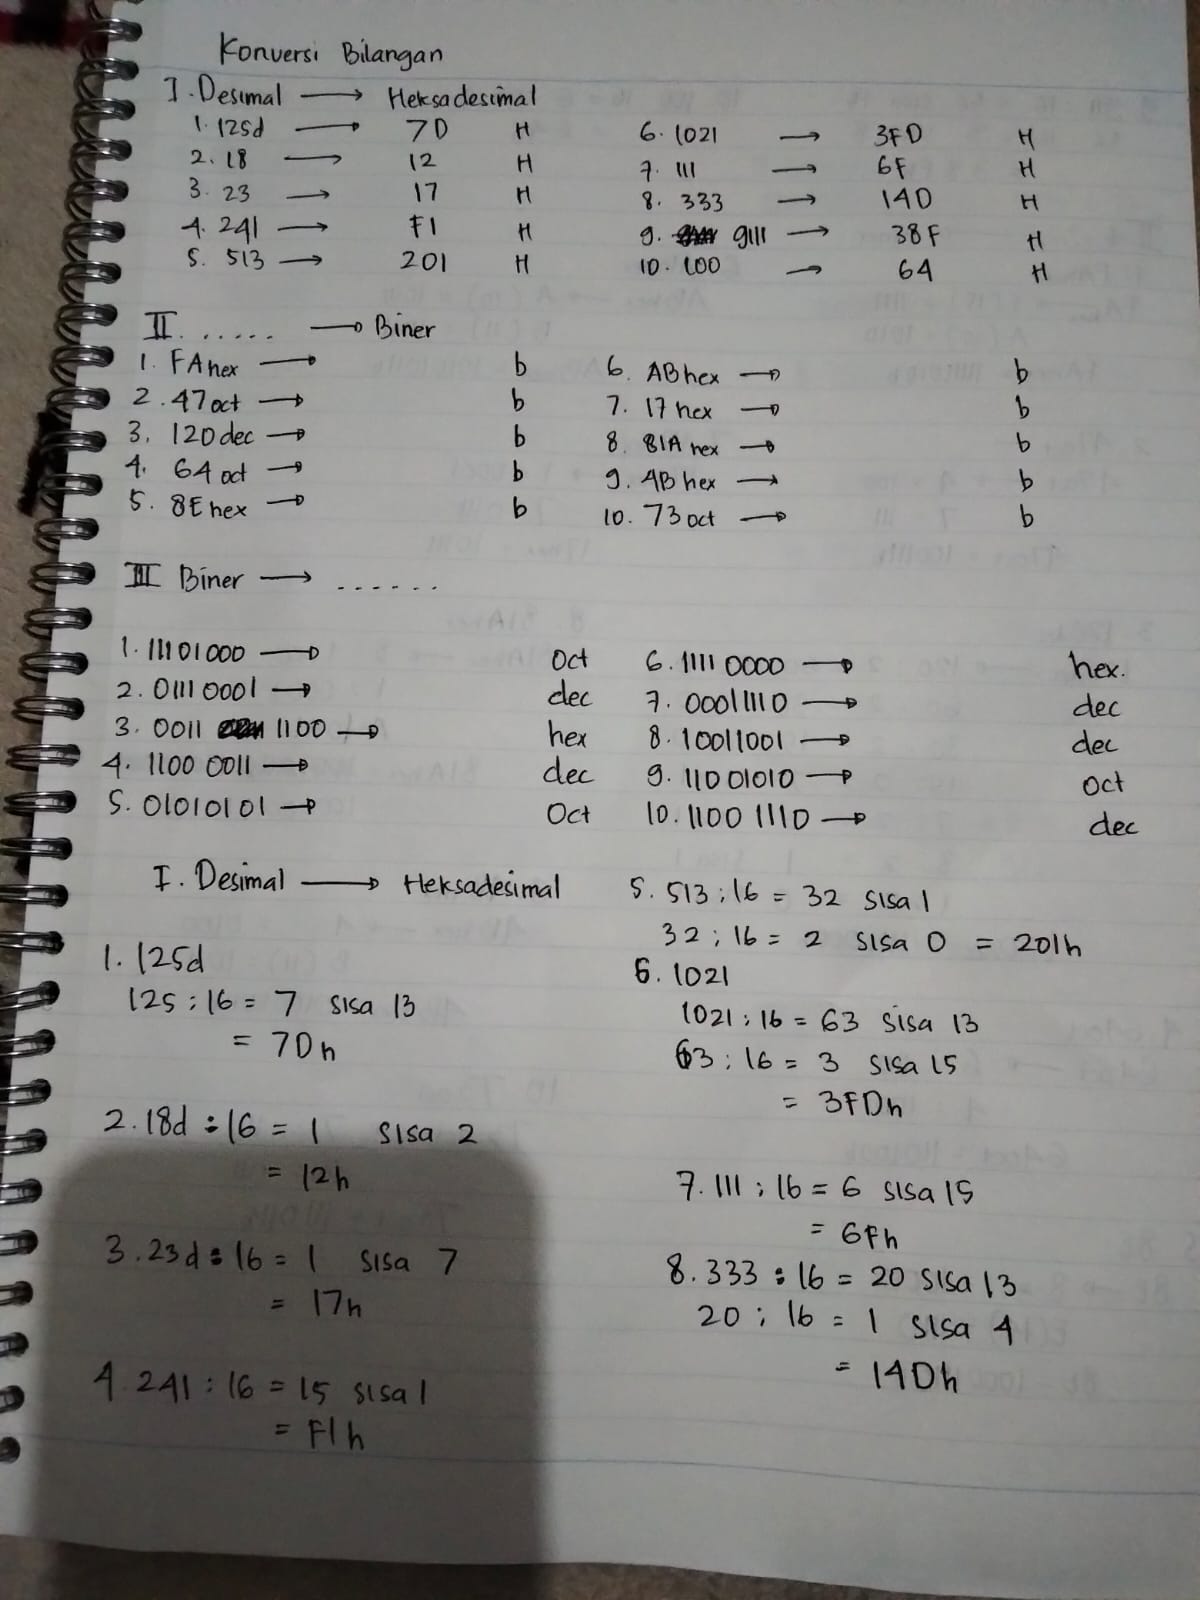 Konversi Bilangan
I. Desimal → Heksadesimal
1. 125d → 7D H
2. 18 → 12 H
3. 23 → 17 H
4. 241 → F1 H
5. 513 → 201 H
6. 1021 → 3FD H
7. 111 → 6F H
8. 333 → 14D H
9. 9111 → 38F H
10. 100 → 64 H
II ...... → Biner
1. FA hex → b
2. 47 oct → b
3. 120 dec → b
4. 64 oct → b
5. 8E hex → b
6. AB hex → b
7. 17 hex → b
8. 81A hex → b
9. AB hex → b
10. 73 oct → b
III Biner → ......
1. 11101000 → Oct
2. 0111 0001 → dec
3. 0011 1100 → hex
4. 1100 0011 → dec
5. 01010101 → Oct
6. 1111 0000 → hex.
7. 00011110 → dec
8. 10011001 → dec
9. 11001010 → Oct
10. 1100 1110 → dec
I. Desimal → Heksadesimal
1. 125d
125 : 16 = 7 sisa 13
= 7Dh
2. 18d : 16 = 1 sisa 2
= 12h
3. 23d : 16 = 1 sisa 7
= 17h
4. 241 : 16 = 15 sisa 1
= F1h
5. 513 : 16 = 32 sisa 1
32 : 16 = 2 sisa 0 = 201h
6. 1021
1021 : 16 = 63 sisa 13
63 : 16 = 3 sisa 15
= 3FDh
7. 111 : 16 = 6 sisa 15
= 6Fh
8. 333 : 16 = 20 sisa 13
20 : 16 = 1 sisa 4
= 14Dh